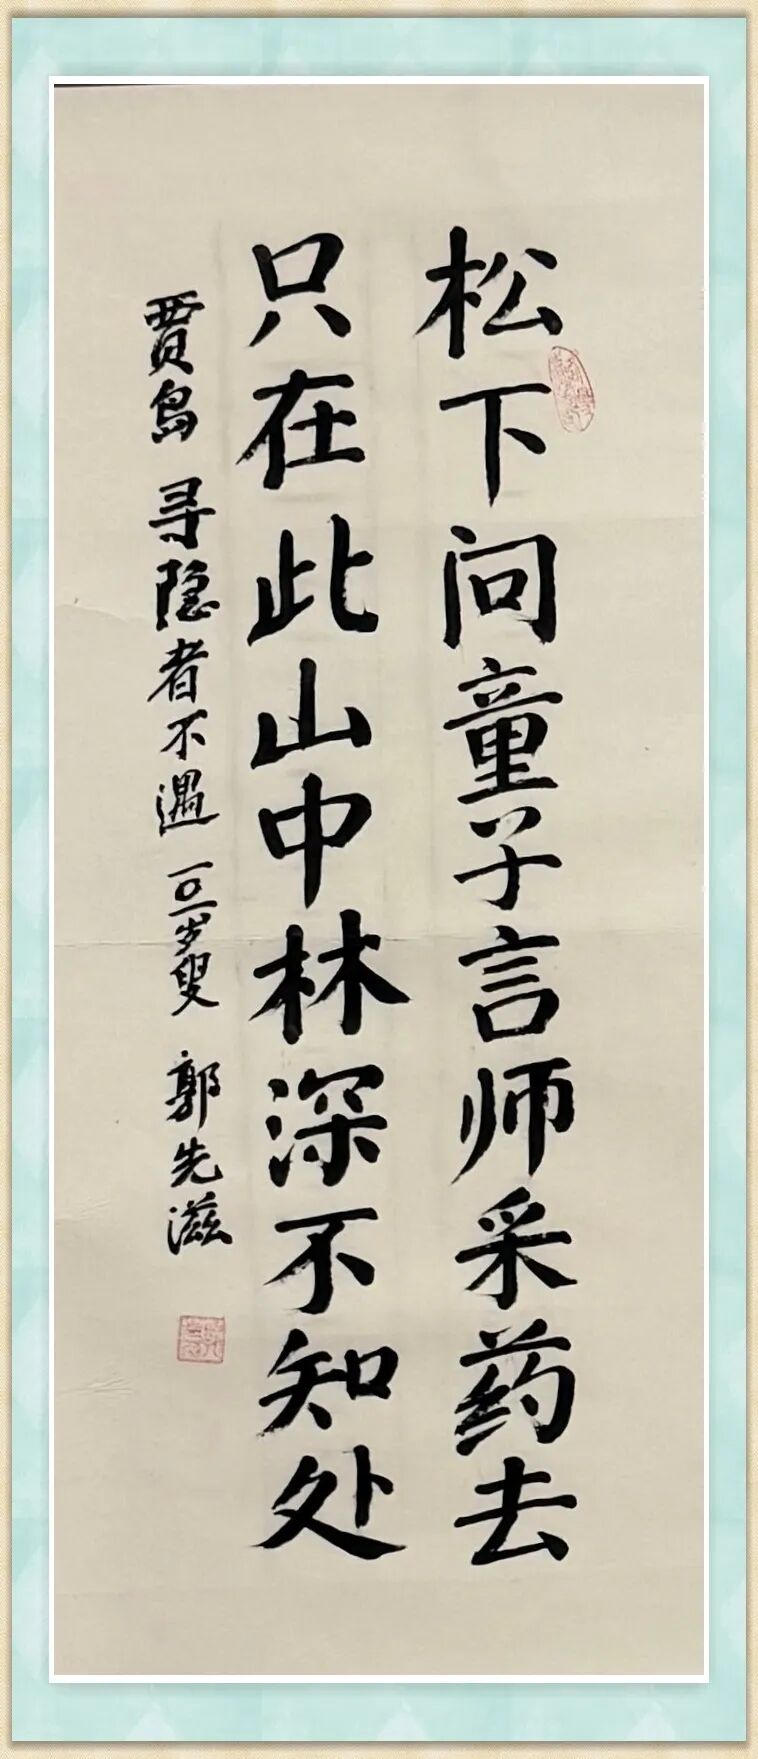 松下问童子言师采药去
只在此山中林深不知处
贾岛 寻隐者不遇 岁叟 郭先滋